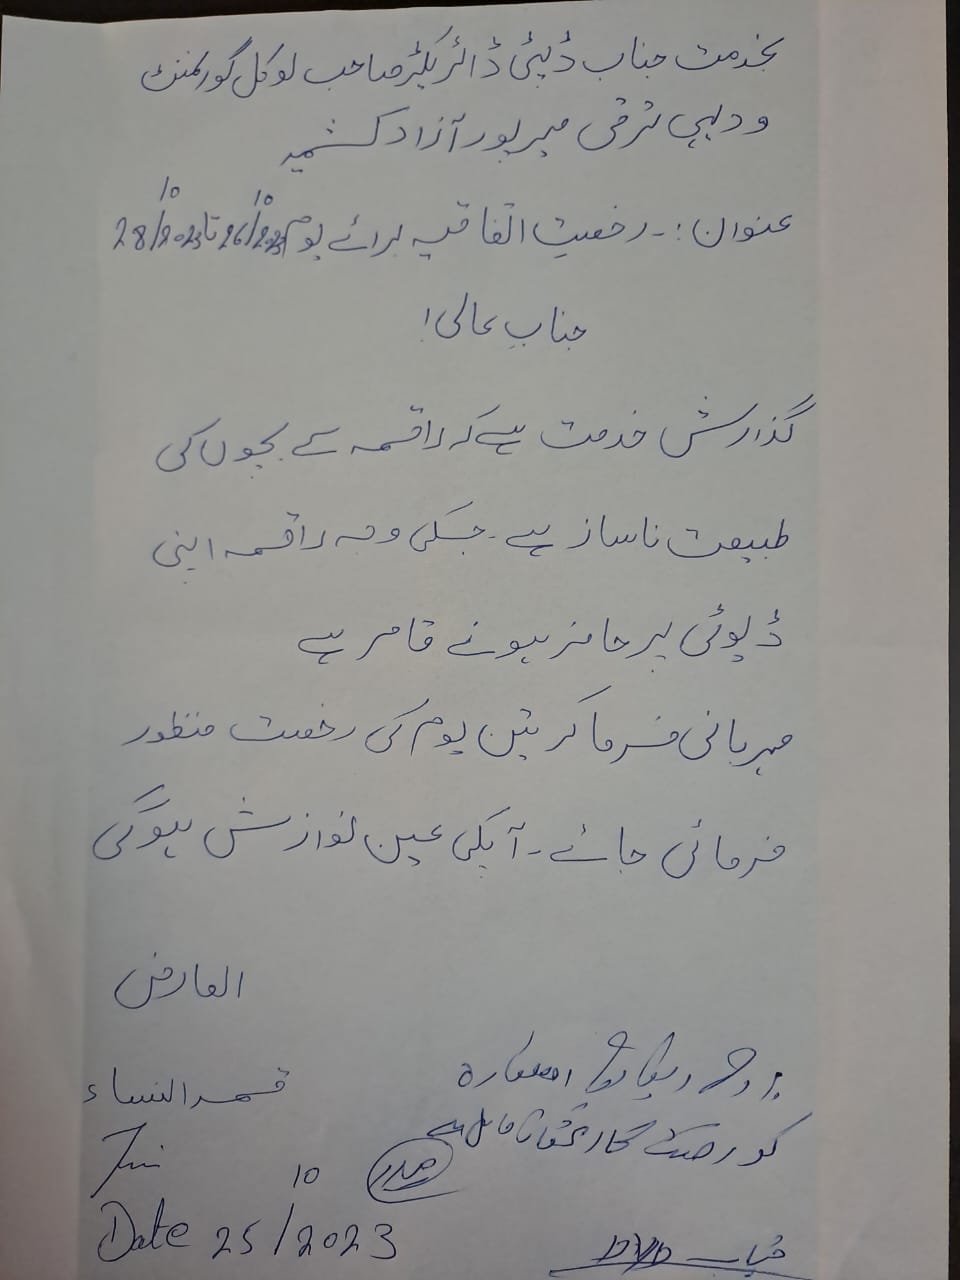 بخدمت جناب ڈپٹی ڈائریکٹر صاحب لوکل گورنمنٹ
و دہی ترقی میرپور آزاد کشمیر
عنوان :- رخصت اتفاقیہ برائے یوم 26/10/2023 تا 28/10/2023
جناب عالی!
گذارش خدمت ہے کہ راقمہ کے بچوں کی
طبیعت ناساز ہے۔ جسکی وجہ راقمہ اپنی
ڈیوٹی پر حاضر ہونے قاصر ہے
مہربانی فرما کر تین یوم کی رخصت منظور
فرمائی جائے۔ آپکی عین نوازش ہوگی
العارض
قمر النساء
Date 25/10/2023
کو رخصت
صدر
جناب